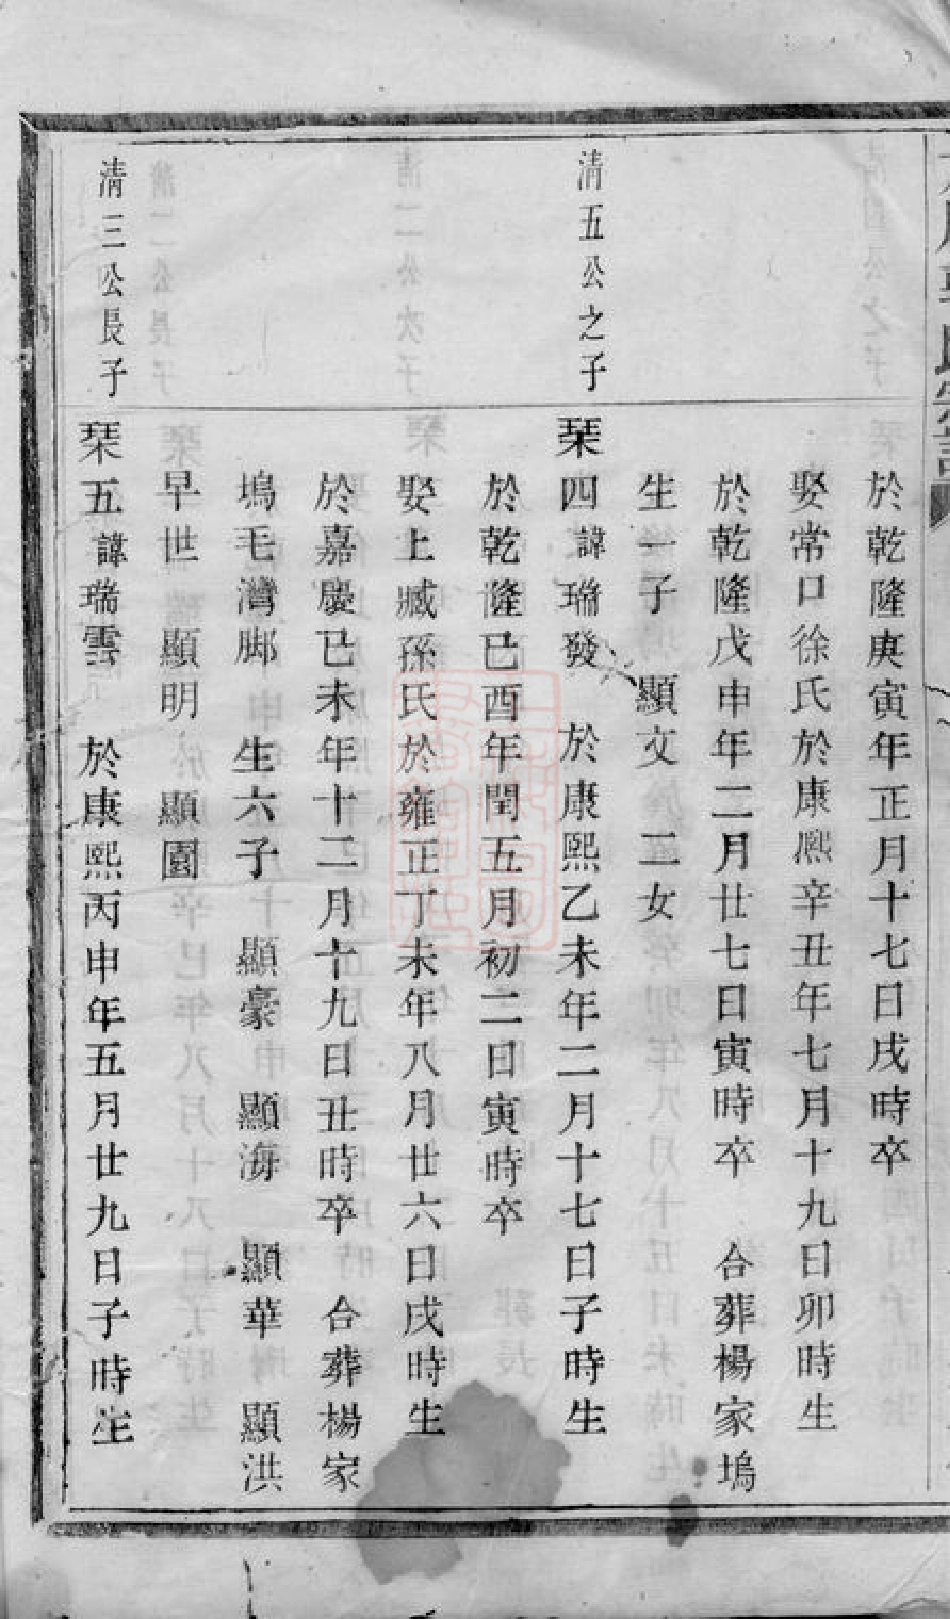 於乾隆庚寅年正月十七日戌時卒
娶常口徐氏於康熙辛丑年七月十九日卯時生
於乾隆戊申年二月廿七日寅時卒 合葬楊家塢
生一子 顯文 二女
清五公之子
琹四諱瑞發 於康熙乙未年二月十七日子時生
於乾隆已酉年閏五月初二日寅時卒
娶上臧孫氏於雍正丁未年八月廿六日戌時生
於嘉慶已未年十二月十九日丑時卒 合葬楊家
塢毛灣脚 生六子 顯豪 顯海 顯華 顯洪
早世 顯明 顯園
清三公長子
琹五諱瑞雲 於康熙丙申年五月廿九日子時生